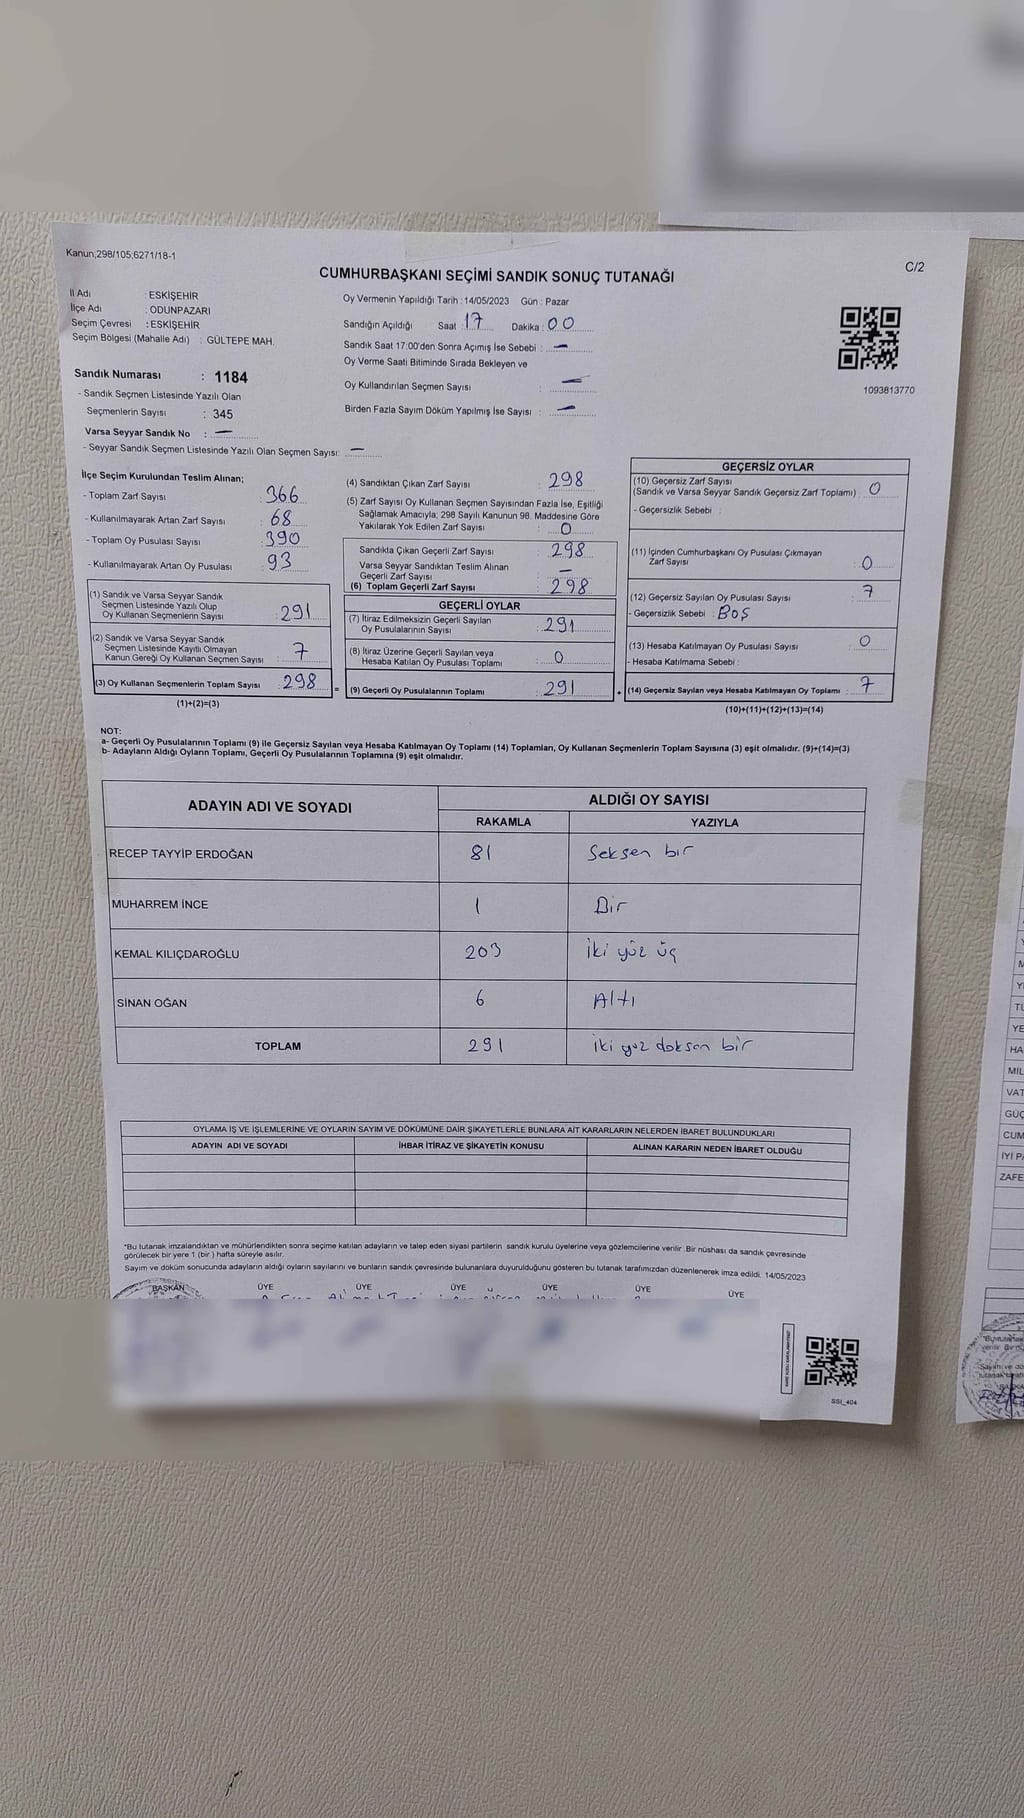 Kanun;298/105;6271/18-1
C/2
CUMHURBAŞKANI SEÇİMİ SANDIK SONUÇ TUTANAĞI
İl Adı : ESKİŞEHİR
İlçe Adı : ODUNPAZARI
Seçim Çevresi : ESKİŞEHİR
Seçim Bölgesi (Mahalle Adı) : GÜLTEPE MAH.
Sandık Numarası : 1184
- Sandık Seçmen Listesinde Yazılı Olan
Seçmenlerin Sayısı : 345
Varsa Seyyar Sandık No : —
- Seyyar Sandık Seçmen Listesinde Yazılı Olan Seçmen Sayısı: —
Oy Vermenin Yapıldığı Tarih : 14/05/2023 Gün : Pazar
Sandığın Açıldığı Saat : 17 Dakika : 00
Sandık Saat 17:00'den Sonra Açımış İse Sebebi : —
Oy Verme Saati Bitiminde Sırada Bekleyen ve
Oy Kullandırılan Seçmen Sayısı : —
Birden Fazla Sayım Döküm Yapılmış İse Sayısı : —
1093813770
İlçe Seçim Kurulundan Teslim Alınan;
- Toplam Zarf Sayısı : 366
- Kullanılmayarak Artan Zarf Sayısı : 68
- Toplam Oy Pusulası Sayısı : 390
- Kullanılmayarak Artan Oy Pusulası : 93
(1) Sandık ve Varsa Seyyar Sandık
Seçmen Listesinde Yazılı Olup
Oy Kullanan Seçmenlerin Sayısı : 291
(2) Sandık ve Varsa Seyyar Sandık
Seçmen Listesinde Kayıtlı Olmayan
Kanun Gereği Oy Kullanan Seçmen Sayısı : 7
(3) Oy Kullanan Seçmenlerin Toplam Sayısı : 298
(1)+(2)=(3)
(4) Sandıktan Çıkan Zarf Sayısı : 298
(5) Zarf Sayısı Oy Kullanan Seçmen Sayısından Fazla İse, Eşitliği
Sağlamak Amacıyla; 298 Sayılı Kanunun 98. Maddesine Göre
Yakılarak Yok Edilen Zarf Sayısı : 0
Sandıkta Çıkan Geçerli Zarf Sayısı : 298
Varsa Seyyar Sandıktan Teslim Alınan
Geçerli Zarf Sayısı : —
(6) Toplam Geçerli Zarf Sayısı : 298
GEÇERLİ OYLAR
(7) İtiraz Edilmeksizin Geçerli Sayılan
Oy Pusulalarının Sayısı : 291
(8) İtiraz Üzerine Geçerli Sayılan veya
Hesaba Katılan Oy Pusulası Toplamı : 0
= (9) Geçerli Oy Pusulalarının Toplamı : 291 +
GEÇERSİZ OYLAR
(10) Geçersiz Zarf Sayısı
(Sandık ve Varsa Seyyar Sandık Geçersiz Zarf Toplamı) : 0
- Geçersizlik Sebebi :
(11) İçinden Cumhurbaşkanı Oy Pusulası Çıkmayan
Zarf Sayısı : 0
(12) Geçersiz Sayılan Oy Pusulası Sayısı : 7
- Geçersizlik Sebebi : BOŞ
(13) Hesaba Katılmayan Oy Pusulası Sayısı : 0
- Hesaba Katılmama Sebebi :
(14) Geçersiz Sayılan veya Hesaba Katılmayan Oy Toplamı : 7
(10)+(11)+(12)+(13)=(14)
NOT:
a- Geçerli Oy Pusulalarının Toplamı (9) ile Geçersiz Sayılan veya Hesaba Katılmayan Oy Toplamı (14) Toplamları, Oy Kullanan Seçmenlerin Toplam Sayısına (3) eşit olmalıdır. (9)+(14)=(3)
b- Adayların Aldığı Oyların Toplamı, Geçerli Oy Pusulalarının Toplamına (9) eşit olmalıdır.
ADAYIN ADI VE SOYADI ALDIĞI OY SAYISI
RAKAMLA YAZIYLA
RECEP TAYYİP ERDOĞAN 81 Seksen bir
MUHARREM İNCE 1 Bir
KEMAL KILIÇDAROĞLU 203 İki yüz üç
SİNAN OĞAN 6 Altı
TOPLAM 291 iki yüz doksan bir
OYLAMA İŞ VE İŞLEMLERİNE VE OYLARIN SAYIM VE DÖKÜMÜNE DAİR ŞİKAYETLERLE BUNLARA AİT KARARLARIN NELERDEN İBARET BULUNDUKLARI
ADAYIN ADI VE SOYADI İHBAR İTİRAZ VE ŞİKAYETİN KONUSU ALINAN KARARIN NEDEN İBARET OLDUĞU
*Bu tutanak imzalandıktan ve mühürlendikten sonra seçime katılan adayların ve talep eden siyasi partilerin sandık kurulu üyelerine veya gözlemcilerine verilir. Bir nüshası da sandık çevresinde
görülecek bir yere 1 (bir ) hafta süreyle asılır.
Sayım ve döküm sonucunda adayların aldığı oyların sayılarını ve bunların sandık çevresinde bulunanlara duyurulduğunu gösteren bu tutanak tarafımızdan düzenlenerek imza edildi. 14/05/2023
BAŞKAN ÜYE ÜYE ÜYE ÜYE ÜYE ÜYE
SSI_404
HA
MİL
VAT
GÜÇ
CUM
İYİ P
ZAFE